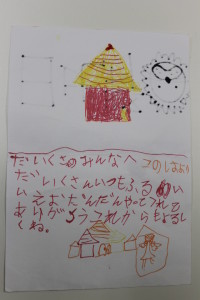 だいくさんのみんなへ
だいくさんいつもふるい
いえおだんだんやってくれて
ありがとうこれからもよろし
くね。